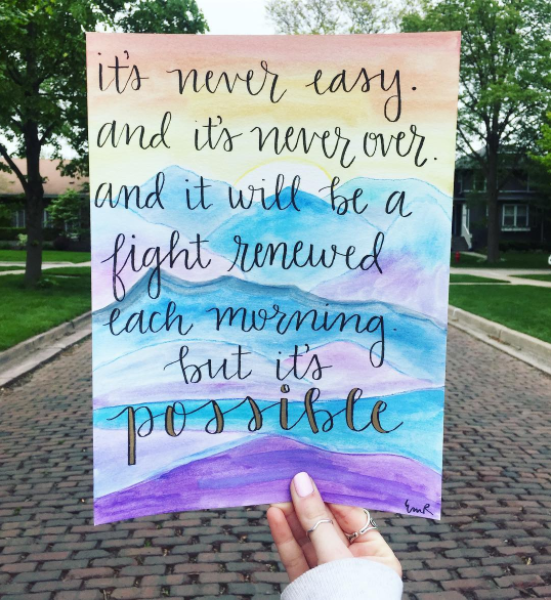 it's never easy.
and it's never over.
and it will be a
fight renewed
each morning.
but it's
possible
EMR